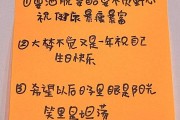 祝 健康 暴瘦 暴富
②大梦不觉又是一年祝自己
生日快乐
③希望以后日子里眼是阳光
笑里是坦荡